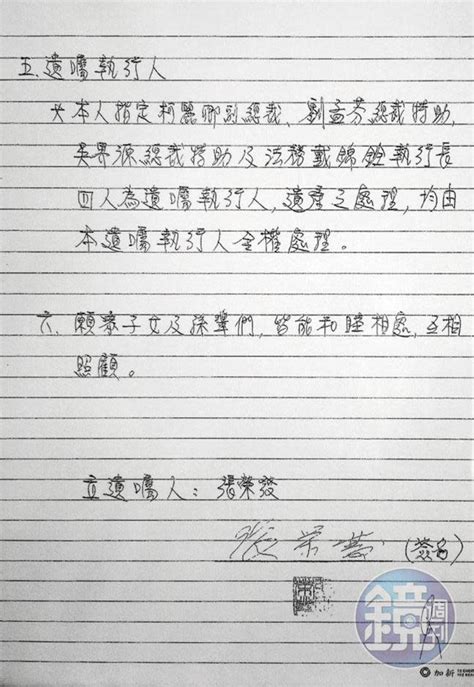 五、遺囑執行人
本人指定柯麗卿副總裁、劉孟芬總裁特助,
吳界源總裁特助及法務戴錦銓執行長
四人為遺囑執行人,遺產之處理,均由
本遺囑執行人全權處理。
六、願眾子女及孫輩們,皆能和睦相處,互相
照顧。
立遺囑人：張榮發
張榮發 (簽名)
鏡週刊
加新